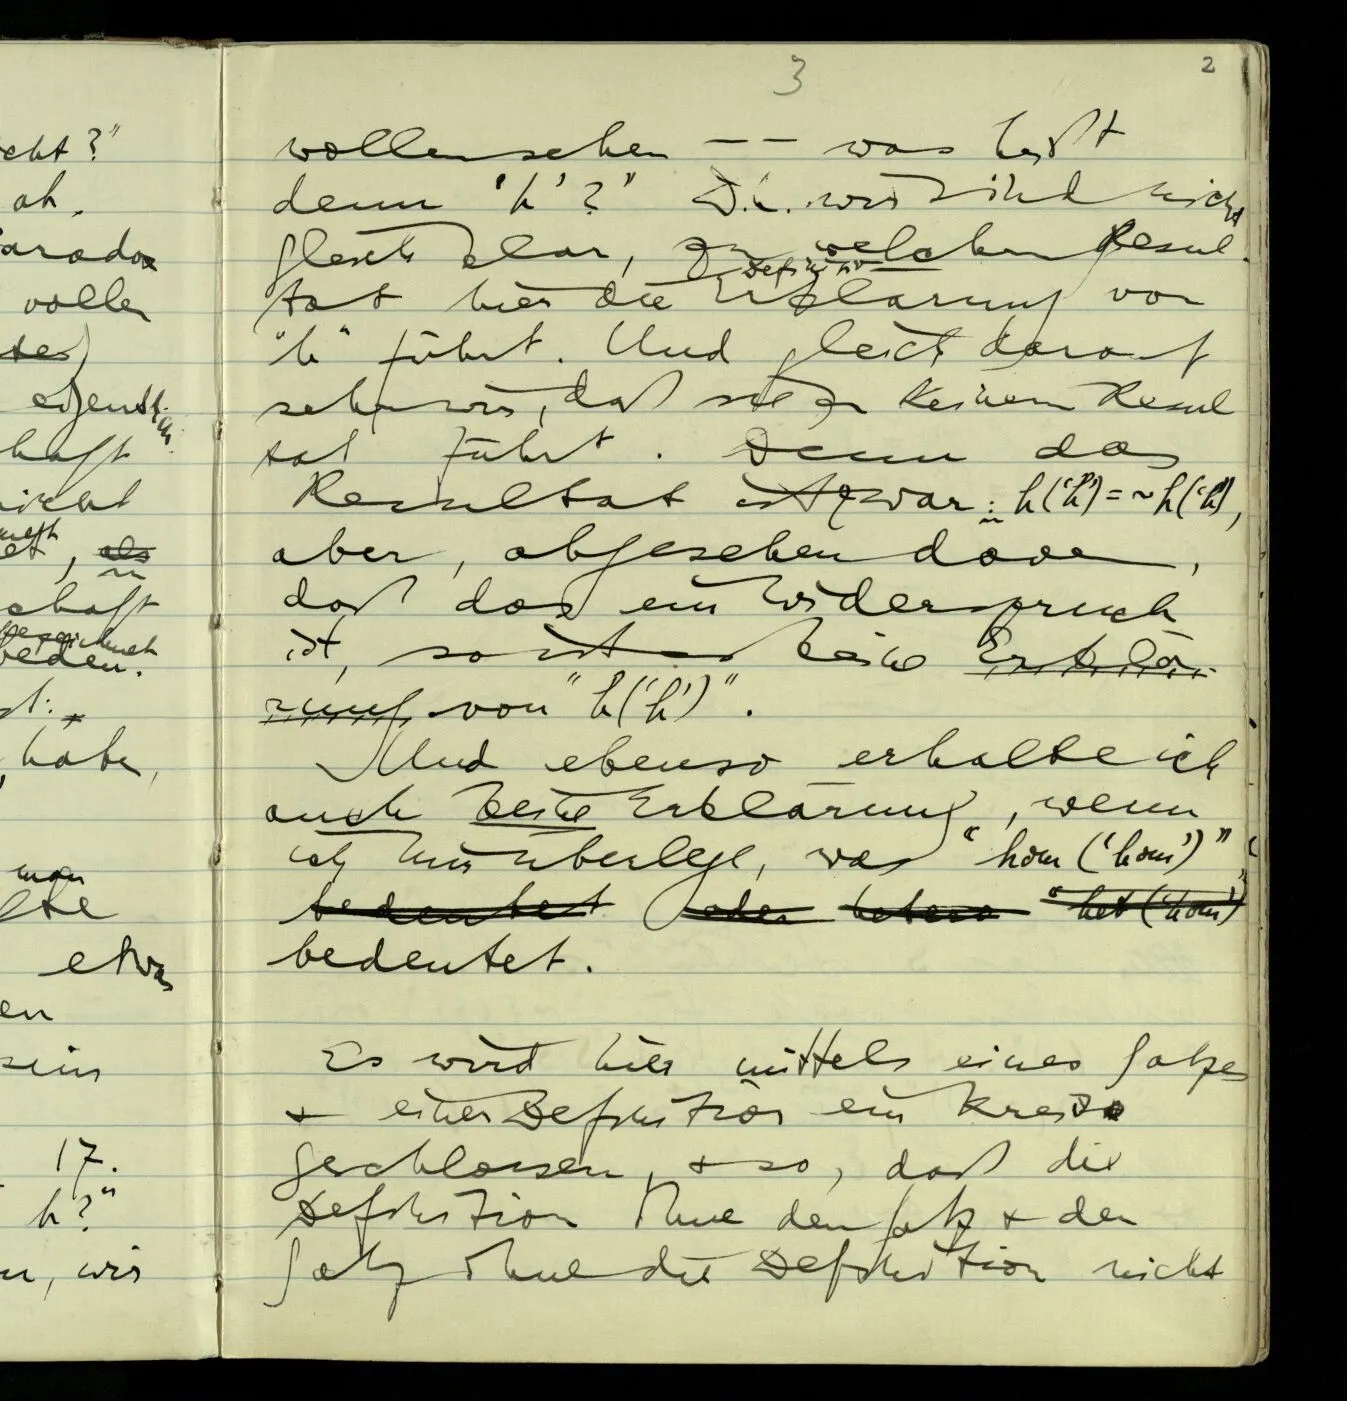 3
2
wollen sehen –– was heißt
denn 'h'?" D.h. wir sind nicht
gleich klar, zu welchem Resul-
Definition
tat hier die Erklärung von
"h" führt. Und gleich darauf
sehen wir, daß sie zu keinem Resul
tat führt. Denn das
Resultat ist zwar: h('h') = ~h('h'),
aber, abgesehen davon,
daß das ein Widerspruch
ist, so ist es keine Erklä-
rung von "h('h')".
Und ebenso erhalte ich
auch keine Erklärung, wenn
ich mir überlege, was "hom('hom')"
bedeutet oder hetero "het('hom')"
bedeutet.
Es wird hier mittels eines Satzes
+ einer Definition ein Kreis
geschlossen, + so, daß die
Definition ohne den Satz + der
Satz ohne die Definition nicht
cht?"
ab.
Paradox
voller
eigentl.
haft
nicht
, als
schaft
bezeichnet
reden.
, habe,
man
etwas
en
sein
17.
h?"
n, wir